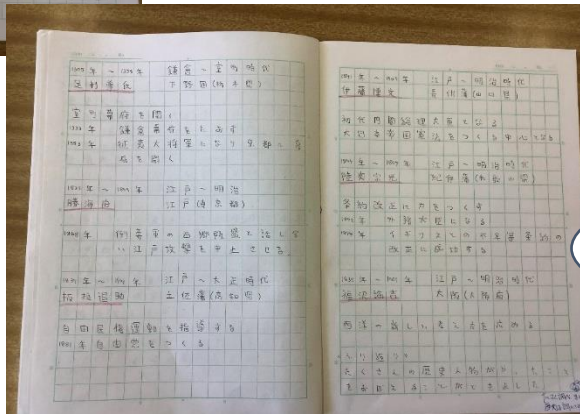 1305年 〜 1358年 鎌倉〜室町時代
足利尊氏 下野国(栃木県)
室町幕府を開く
1333年 鎌倉幕府をたおす
1338年 征夷大将軍になり京都に幕
府を開く
1823年 〜 1899年 江戸〜明治
勝海舟 江戸(東京都)
1868年 倒幕軍の西郷隆盛と話し合
い江戸攻撃を中止させた。
1837年 〜 1919年 江戸〜大正時代
板垣退助 土佐藩(高知県)
自由民権運動を指導する
1881年自由党をつくる
1841年 〜 1909年 江戸〜明治時代
伊藤博文 長州藩(山口県)
初代内閣総理大臣となる
大日本帝国憲法をつくる中心となる
1844年 〜 1897年 江戸〜明治時代
陸奥宗光 紀伊藩(和歌山県)
条約改正に力をつくす
1892年 外務大臣になる
1894年 イギリスとの不平等条約の
改正に成功する
江戸〜明治時代
福沢諭吉 大阪(大阪府)
西洋の新しい考え方を広める
ふり返り
たくさんの歴史人物がいたこと
をおぼえることができました